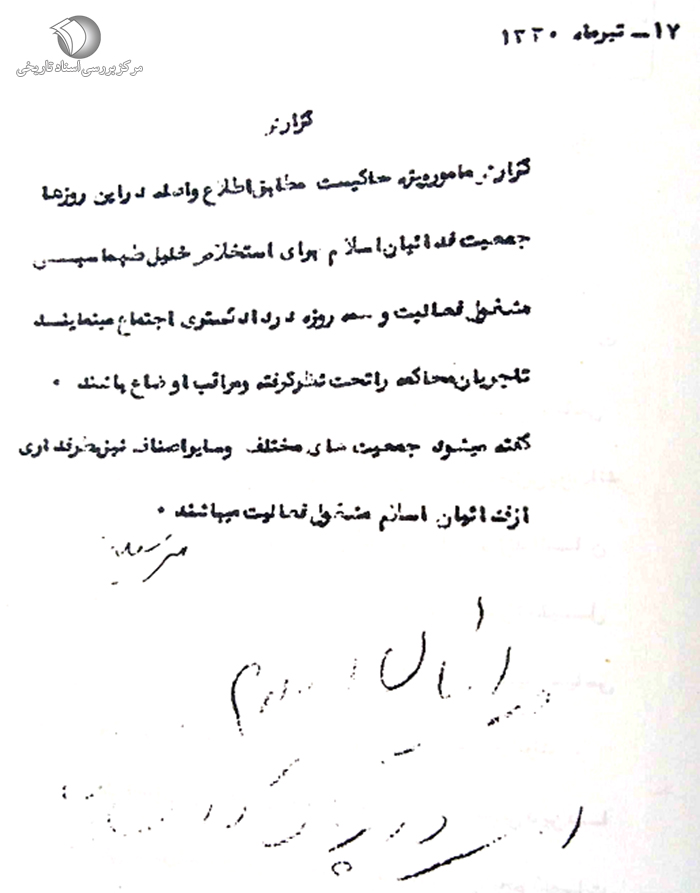 مرکز بررسی اسناد تاریخی
۱۷ـ تیرماه ۱۳۳۰
گزارش
گزارش مامور ویژه حاکیست مطابق اطلاع واصله در این روزها
جمعیت فدائیان اسلام برای استخلاص خلیل طهماسبی
مشغول فعالیت و همه روزه در دادگستری اجتماع مینمایند
تا جریان محاکمه را تحت نظر گرفته و مراقب اوضاع باشند ۰
گفته میشود جمعیت های مختلف وسایر اصناف نیز بطرفداری
از فدائیان اسلام مشغول فعالیت میباشند ۰
فدائیان اسلام